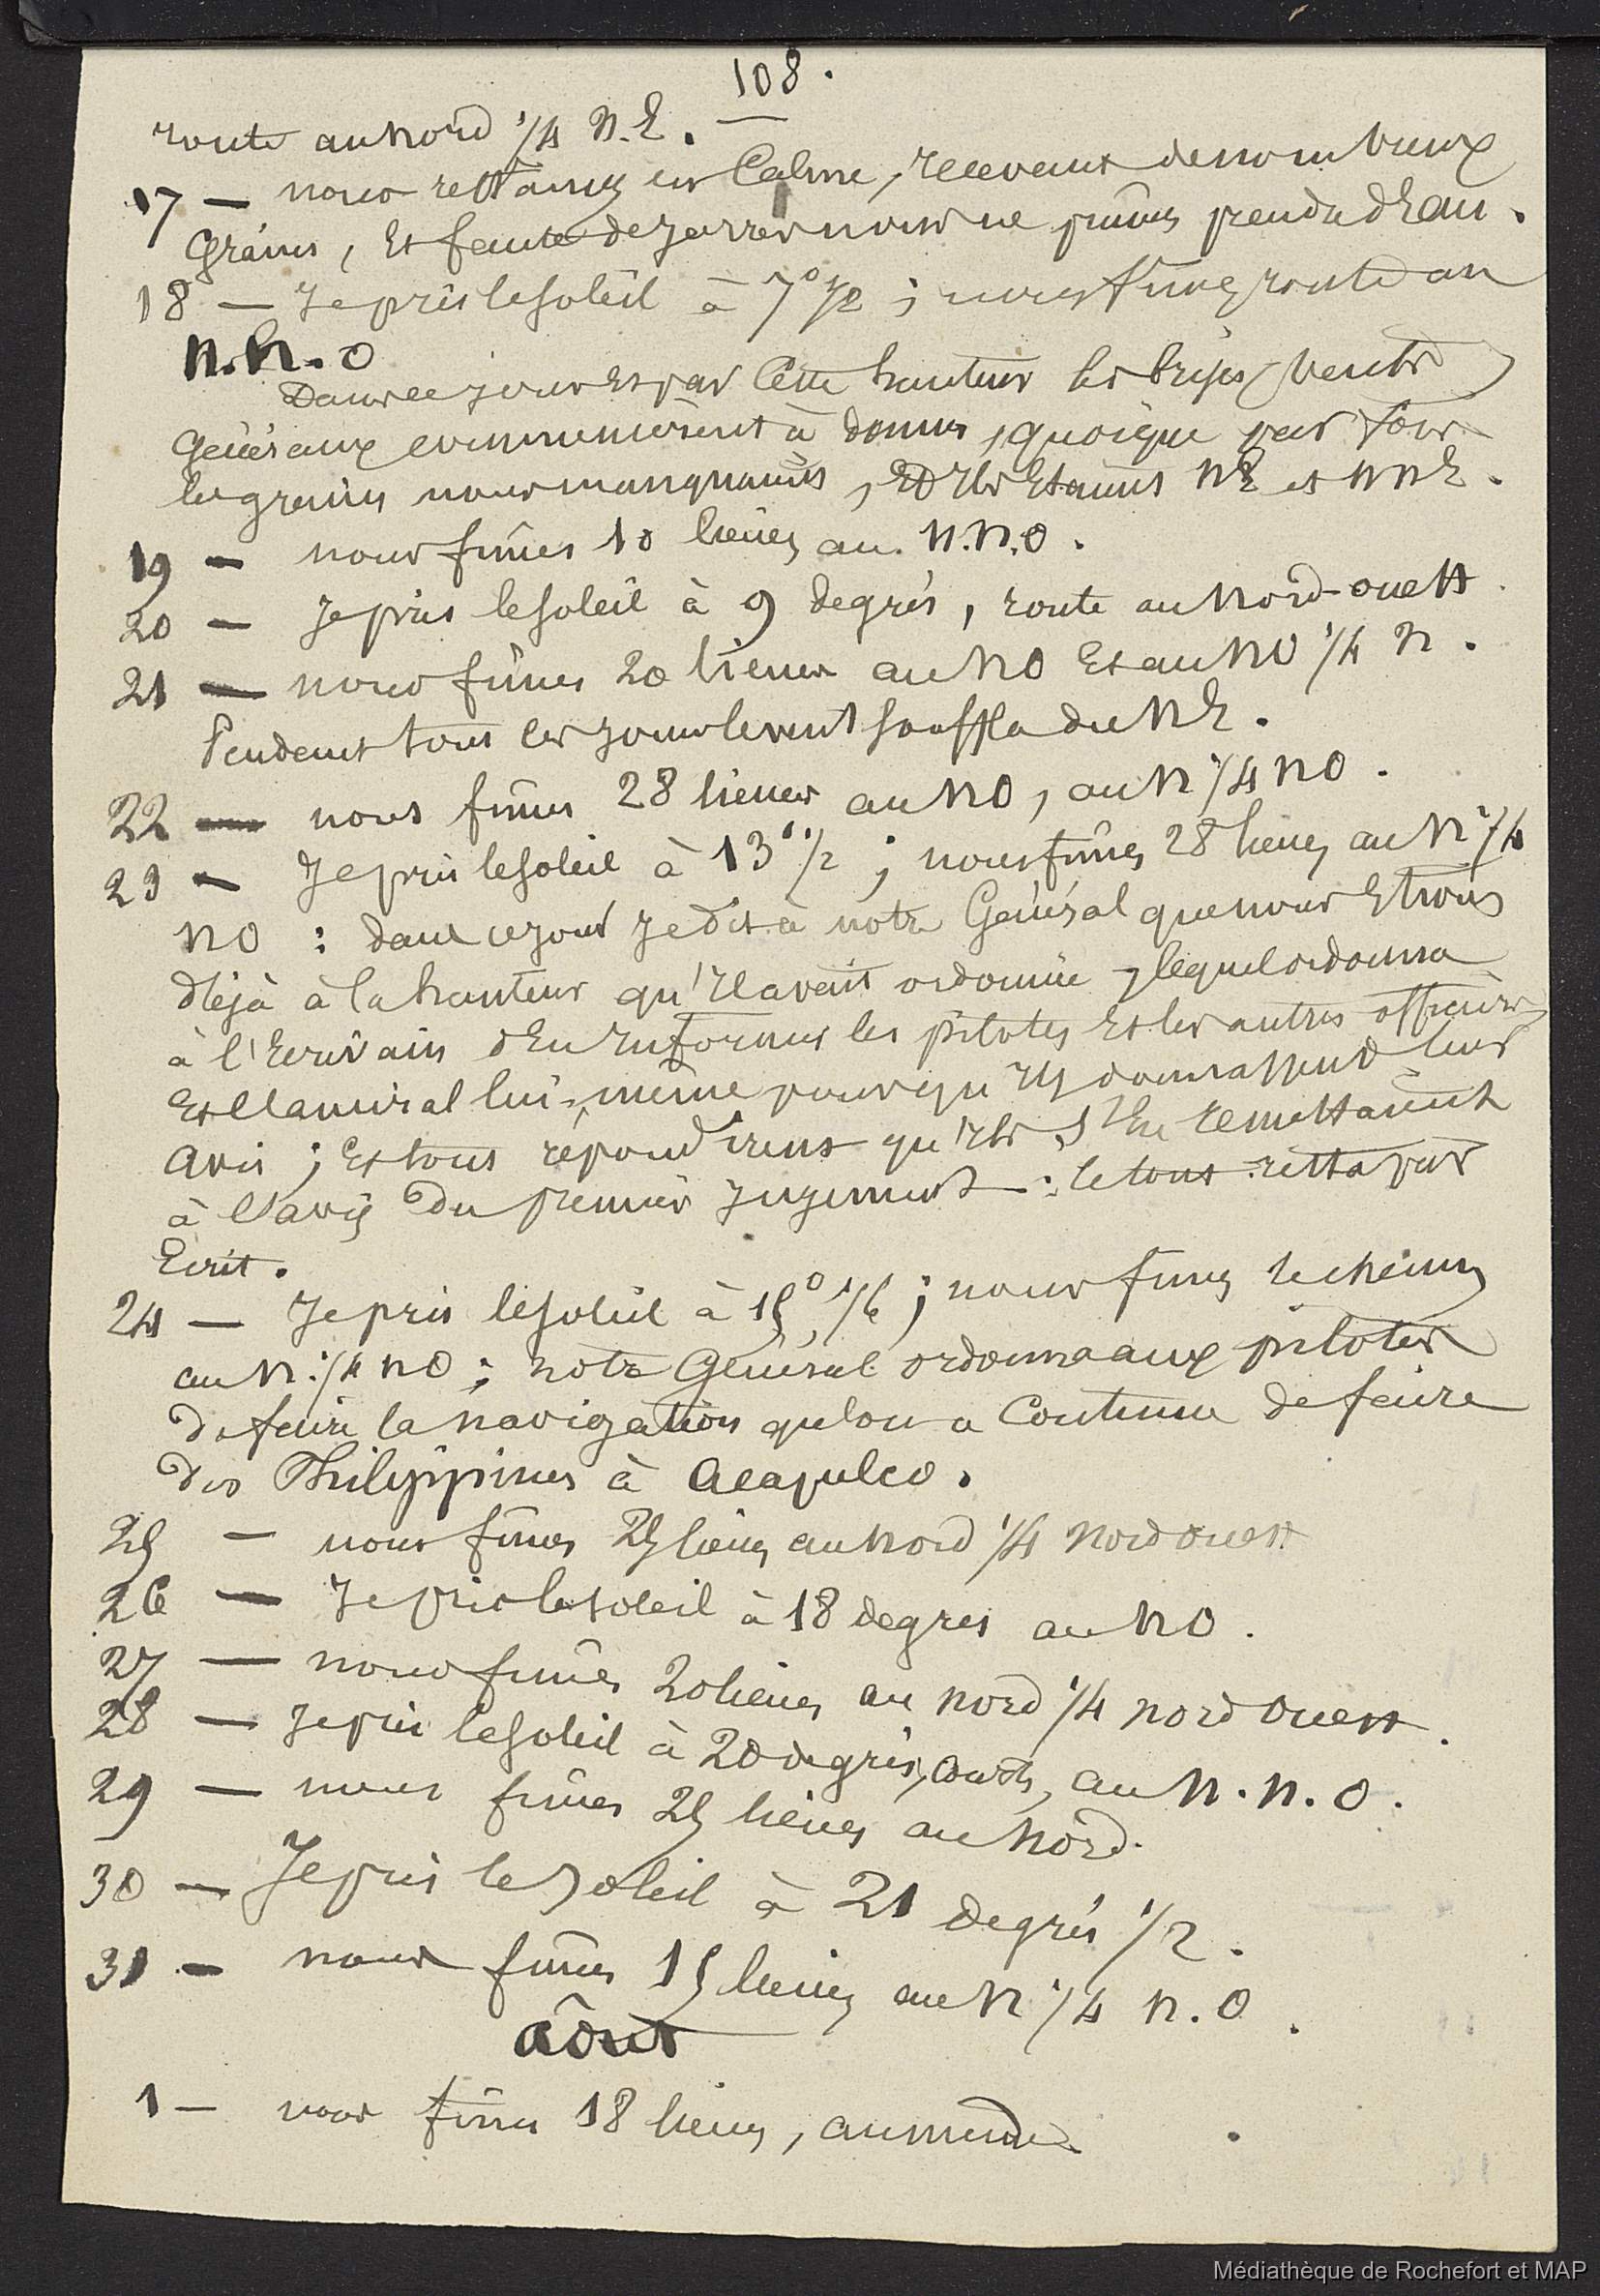 108.
route au nord 1/4 N.E.
17 — nous restames en Calme, recevant de nombreux
Grains, Et faute de jarres nous ne pûmes prendre d'Eau.
18 — Je pris le soleil à 7° 1/2 ; nous fimes route au
N.N.O
Dans ce jour Et par Cette hauteur les brises (vents)
Généraux commencèrent à donner, quoique par fois
les grains nous manquaient, Et Ils Etaient NE et NNE.
19 — nous fîmes 10 lieües au N.N.O.
20 — Je pris le soleil à 9 degrés, route au Nord-ouest
21 — nous fîmes 20 lieues au NO Et au NO 1/4 N.
Pendant tous les jours le vent souffla du NE.
22 — nous fîmes 28 lieues au NO, au N 1/4 NO.
23 — Je pris le soleil à 13° 1/2 ; nous fîmes 28 lieues au N 1/4
NO : dans ce jour Je dis à notre Général que nous Etions
déjà à la hauteur qu'Il avait ordonnée, lequel ordonna
à l'Ecrivain d'En Informer les pilotes Et les autres officiers
Et l'amiral lui-même pour qu'Ils donnassent leur
avis ; Et tous répondirent qu'Ils s'En remettaient
à l'avis du premier Jugement : le tout resta par
Ecrit.
24 — Je pris le soleil à 15° 1/6 ; nous fimes le chemin
au N. 1/4 NO ; notre Général ordonna aux pilotes
de faire la navigation qu'on a Coutume de faire
des Philippines à Acapulco.
25 — nous fîmes 25 lieues au Nord 1/4 Nord Ouest
26 — Je pris le soleil à 18 degrés au NO.
27 — nous fîmes 20 lieues au Nord 1/4 Nord Ouest.
28 — Je pris le soleil à 20 degrés, courts, au N.N.O.
29 — nous fîmes 25 lieües au Nord.
30 — Je pris le soleil à 21 degrés 1/2.
31 — nous fîmes 15 lieues au N 1/4 N.O.
Août
1 — nous fîmes 18 lieues, au même.
Médiathèque de Rochefort et MAP